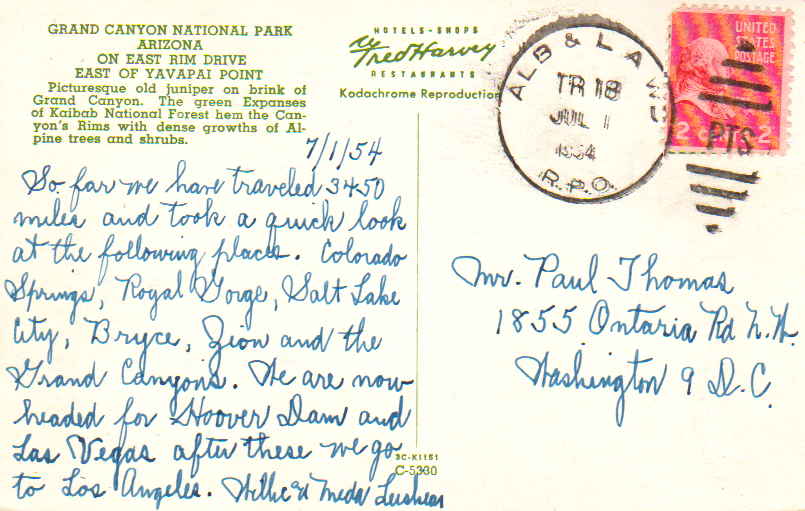 GRAND CANYON NATIONAL PARK
ARIZONA
ON EAST RIM DRIVE
EAST OF YAVAPAI POINT
Picturesque old juniper on brink of
Grand Canyon. The green Expanses
of Kaibab National Forest hem the Can-
yon's Rims with dense growths of Al-
pine trees and shrubs.
HOTELS - SHOPS
Fred Harvey
RESTAURANTS
Kodachrome Reproduction
ALB & LAWS
TR 18
JUL 1
1954
R.P.O.
UNITED
STATES
POSTAGE
2 2
PTS
7/1/54
So far we have traveled 3450
miles and took a quick look
at the following places. Colorado
Springs, Royal Gorge, Salt Lake
City, Bryce, Zion and the
Grand Canyons. We are now
headed for Hoover Dam and
Las Vegas after these we go
to Los Angeles. Willie & Meda
Mr. Paul Thomas
1855 Ontario Rd N.W.
Washington 9 D.C.
3C-K1151
C-5330